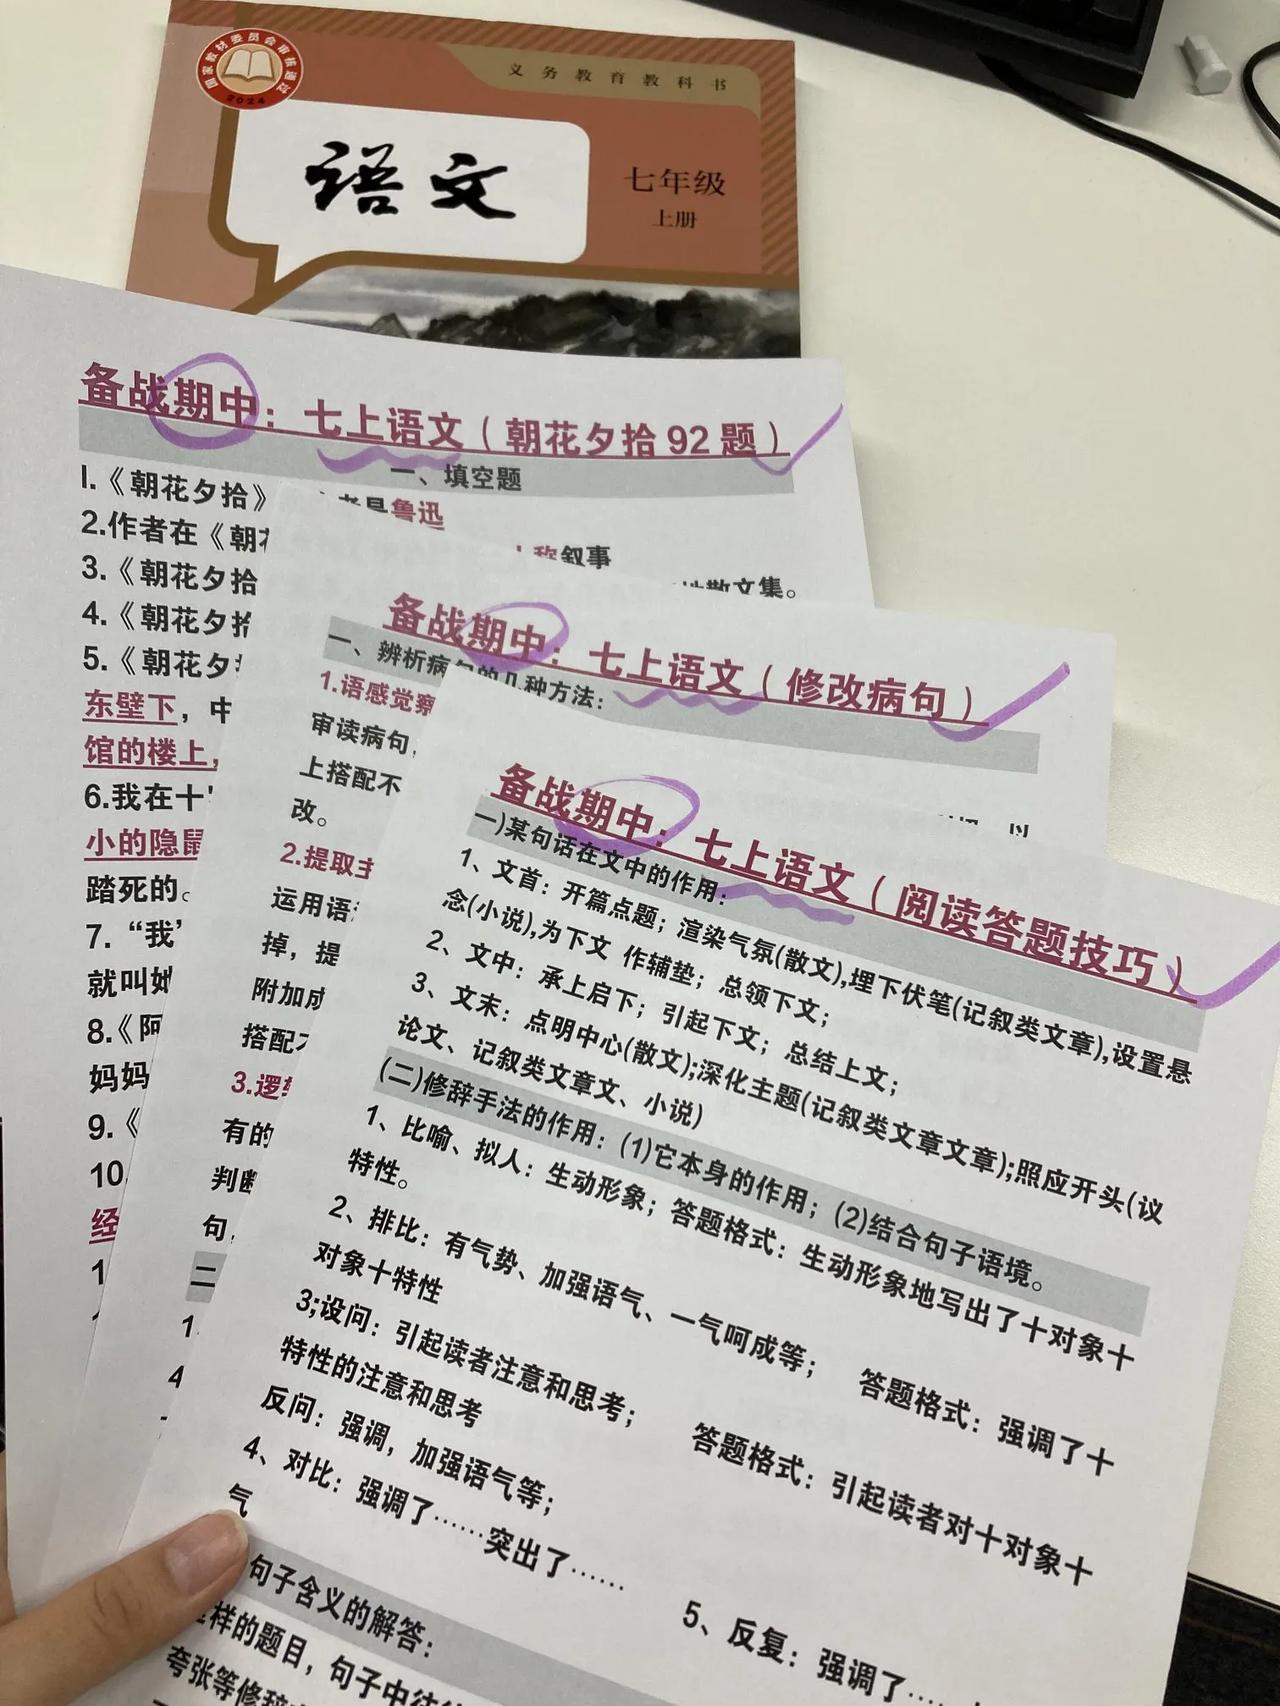 国家教材委员会审核通过
2024
义务教育教科书
语文
七年级
上册
备战期中：七上语文（朝花夕拾92题）
一、填空题
1.《朝花夕拾》 者是鲁迅
2.作者在《朝花 人称叙事
3.《朝花夕拾 散文集。
4.《朝花夕拾
5.《朝花夕
东壁下，中
馆的楼上，
6.我在十
小的隐鼠
踏死的。
7.“我”
就叫她
8.《阿
妈妈
9.《
10.
经
1
备战期中：七上语文（修改病句）
一、辨析病句的几种方法：
1.语感觉察
审读病句，
上搭配不
改。
2.提取主
运用语
掉，提
附加成
搭配不
3.逻辑
有的
判断
句，
二
1
4
备战期中：七上语文（阅读答题技巧）
一)某句话在文中的作用：
1、文首：开篇点题；渲染气氛(散文),埋下伏笔(记叙类文章),设置悬
念(小说),为下文 作辅垫；总领下文；
2、文中：承上启下；引起下文；总结上文；
3、文末：点明中心(散文);深化主题(记叙类文章文章);照应开头(议
论文、记叙类文章文、小说)
(二)修辞手法的作用：(1)它本身的作用；(2)结合句子语境。
1、比喻、拟人：生动形象；答题格式：生动形象地写出了十对象十
特性。
2、排比：有气势、加强语气、一气呵成等； 答题格式：强调了十
对象十特性
3;设问：引起读者注意和思考； 答题格式：引起读者对十对象十
特性的注意和思考
反问：强调，加强语气等；
4、对比：强调了……突出了…… 5、反复：强调了……
气
句子含义的解答：
样的题目，句子中往
夸张等修辞